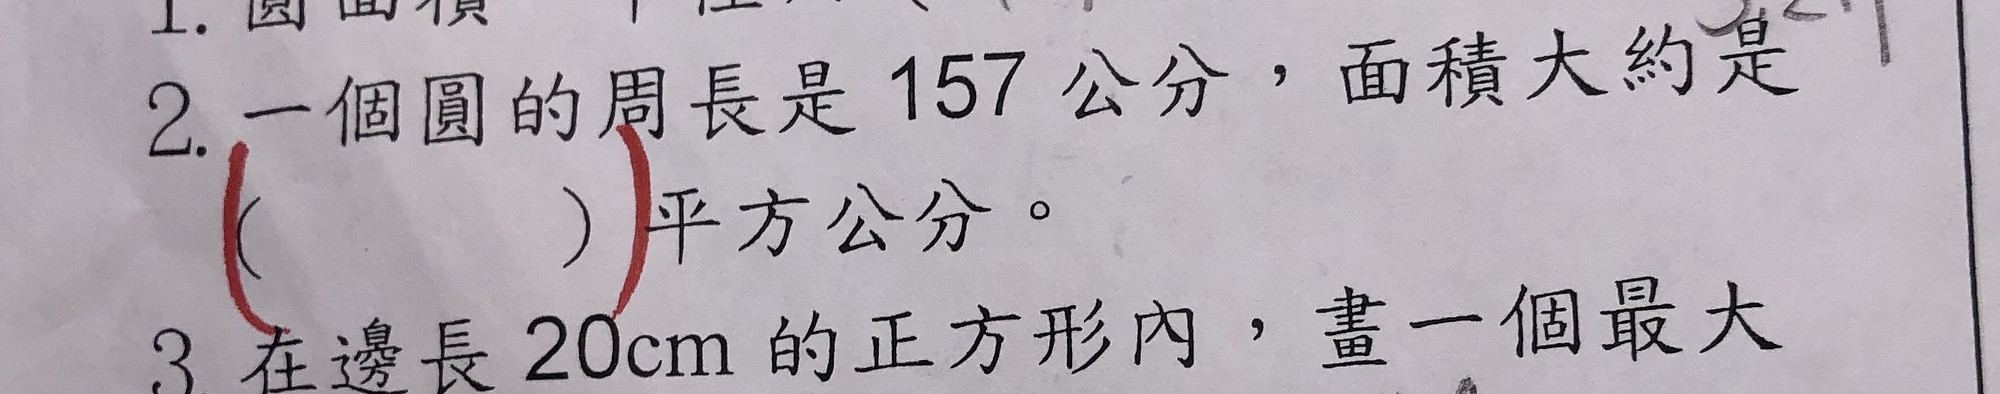 1. 圓面積
2. 一個圓的周長是 157 公分，面積大約是
（　　　）平方公分。
3. 在邊長 20cm 的正方形內，畫一個最大